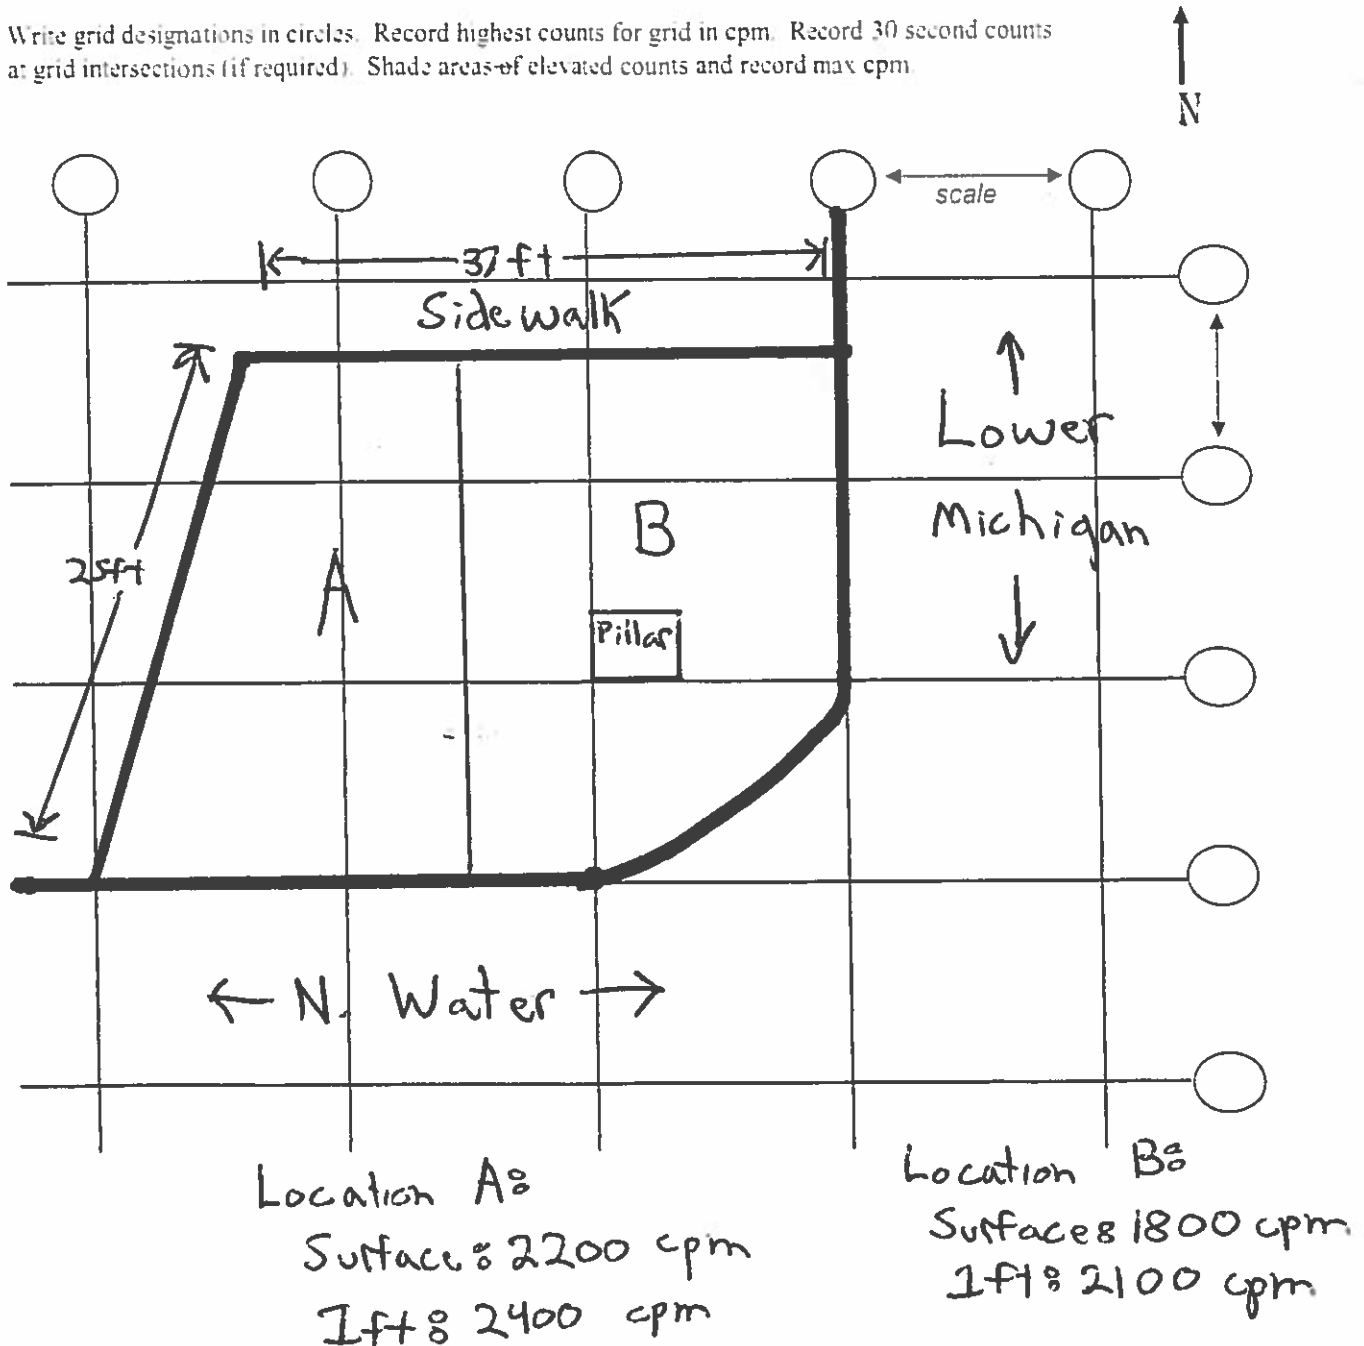 Write grid designations in circles. Record highest counts for grid in cpm. Record 30 second counts
at grid intersections (if required). Shade areas of elevated counts and record max cpm.
N
scale
37 ft
Sidewalk
Lower
Michigan
B
25ft
A
Pillar
← N. Water →
Location A:
Surface: 2200 cpm
1ft: 2400 cpm
Location B:
Surface: 1800 cpm
1ft: 2100 cpm